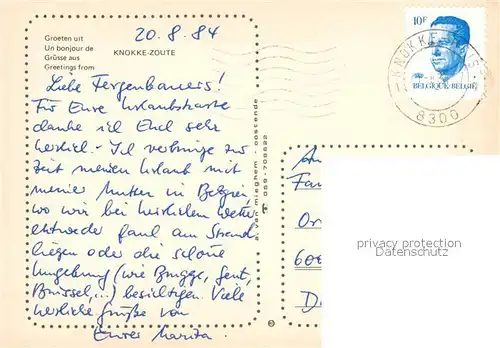 20.8.84
Groeten uit
Un bonjour de
Grüsse aus
Greetings from
KNOKKE-ZOUTE
Liebe Fergenbauers!
Für Eure Urlaubskarte
danke ich Euch sehr
herzlich. Ich verbringe zur
Zeit meinen Urlaub mit
meiner Mutter in Belgien,
wo wir bei herrlichem Wetter
entweder faul am Strand
liegen oder die schöne
Umgebung (wie Brugge, Gent,
Brüssel,...) besichtigen. Viele
herzliche Grüße von
Eurer Marita.
van mieghem - oostende
059-708668
10F
BELGIQUE-BELGIË
KNOKKE
8300
An
Fa
Or
600
D
privacy protection
Datenschutz